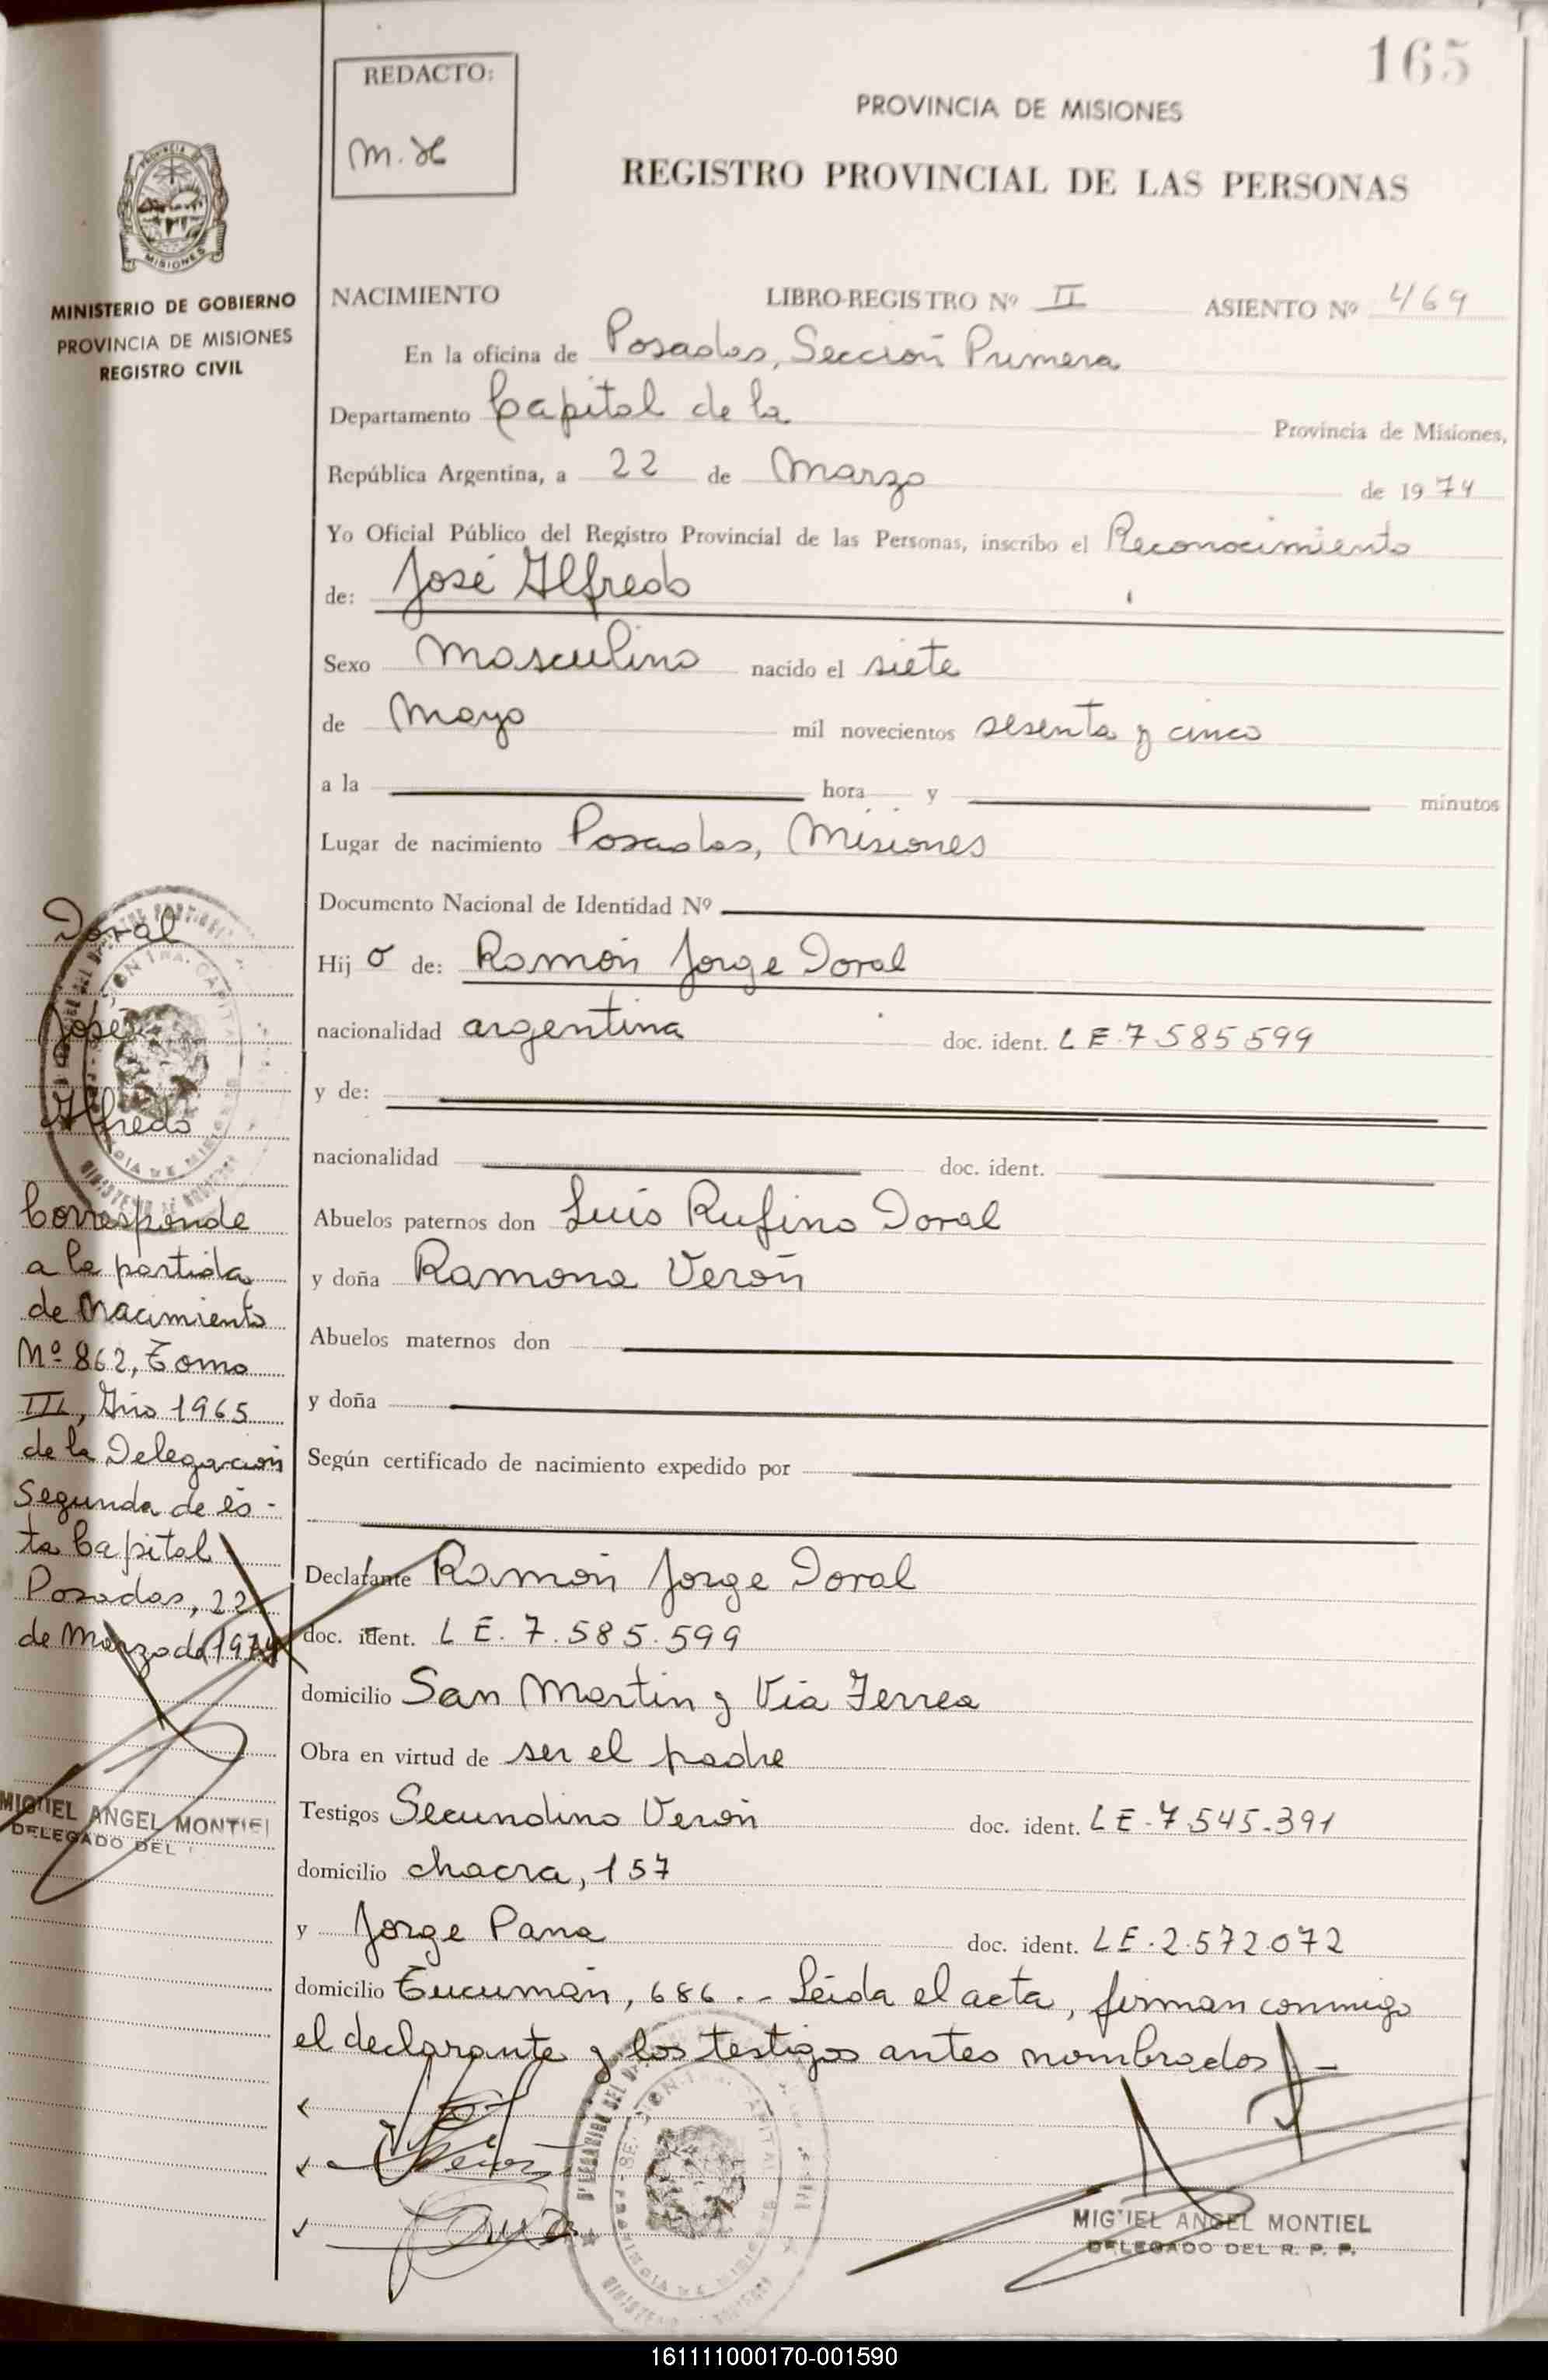 165
REDACTO:
PROVINCIA DE MISIONES
REGISTRO PROVINCIAL DE LAS PERSONAS
MISIONES
MINISTERIO DE GOBIERNO
PROVINCIA DE MISIONES
REGISTRO CIVIL
NACIMIENTO LIBRO-REGISTRO Nº II ASIENTO Nº 469
En la oficina de Posadas, Sección Primera
Departamento Capital de la Provincia de Misiones,
República Argentina, a 22 de Marzo de 1974
Yo Oficial Público del Registro Provincial de las Personas, inscribo el Reconocimiento
de: José Alfredo
Sexo Masculino nacido el siete
de Mayo mil novecientos sesenta y cinco
a la hora y minutos
Lugar de nacimiento Posadas, Misiones
Documento Nacional de Identidad Nº
Hijo de: Ramón Jorge Doral
nacionalidad argentina doc. ident. LE.7.585.599
y de:
nacionalidad doc. ident.
Abuelos paternos don Luis Rufino Doral
y doña Ramona Verón
Abuelos maternos don
y doña
Según certificado de nacimiento expedido por
Declarante Ramón Jorge Doral
doc. ident. LE. 7.585.599
domicilio San Martin y Via Ferrea
Obra en virtud de ser el padre
Testigos Secundino Verón doc. ident. LE-7.545.391
domicilio chacra, 157
y Jorge Pana doc. ident. LE.2.572.072
domicilio Tucumán, 686.- Leída el acta, firman conmigo
el declarante y los testigos antes nombrados.-
MIGUEL ANGEL MONTIEL
DELEGADO DEL R. P. P.
Doral
José
Alfredo
Corresponde
a la partida
de Nacimiento
Nº 862, Tomo
III, Año 1965
de la Delegación
Segunda de es-
ta Capital
Posadas, 22
de Marzo de 1974
MIGUEL ANGEL MONTIEL
DELEGADO DEL
161111000170-001590